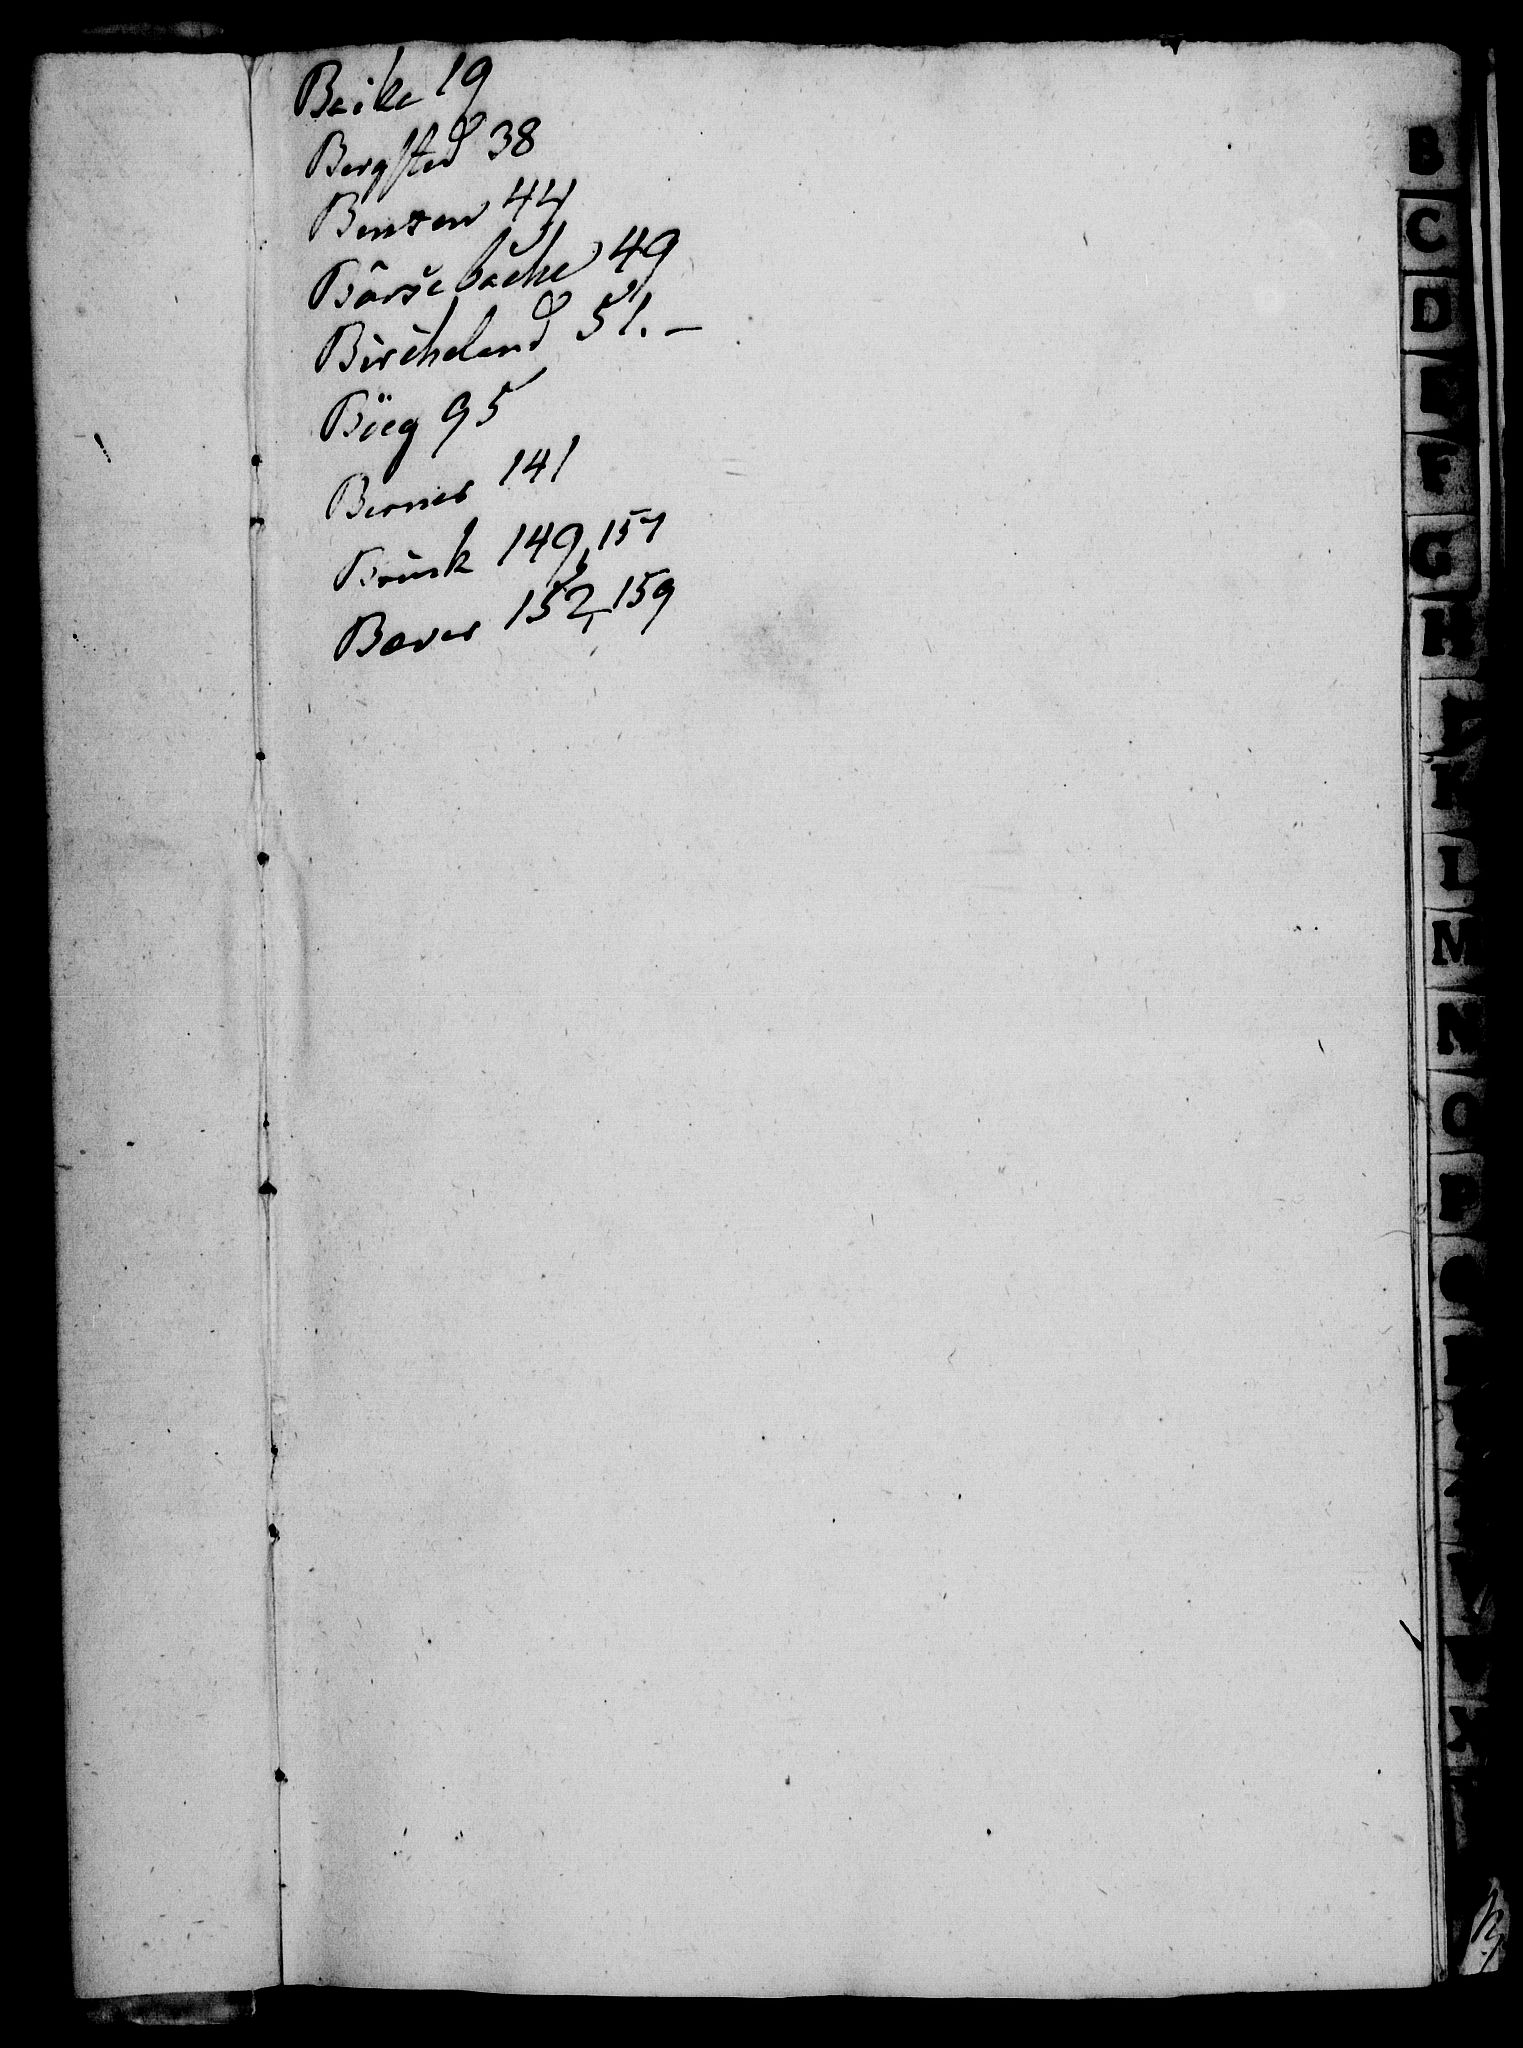 Beike 19
Bergsted 38
Benzen 44
Bârsebache 49
Bircheland 51. –
Böeg 95
Berner 141
Brúsk 149, 157
Bæver 152, 159
B
C
D
E
F
G
H
I
K
L
M
N
O
P